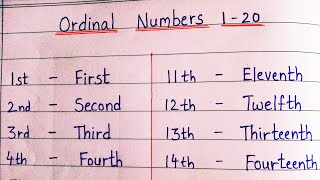 Ordinal Numbers 1-20
1st - First
2nd - Second
3rd - Third
4th - Fourth
11th - Eleventh
12th - Twelfth
13th - Thirteenth
14th - Fourteenth